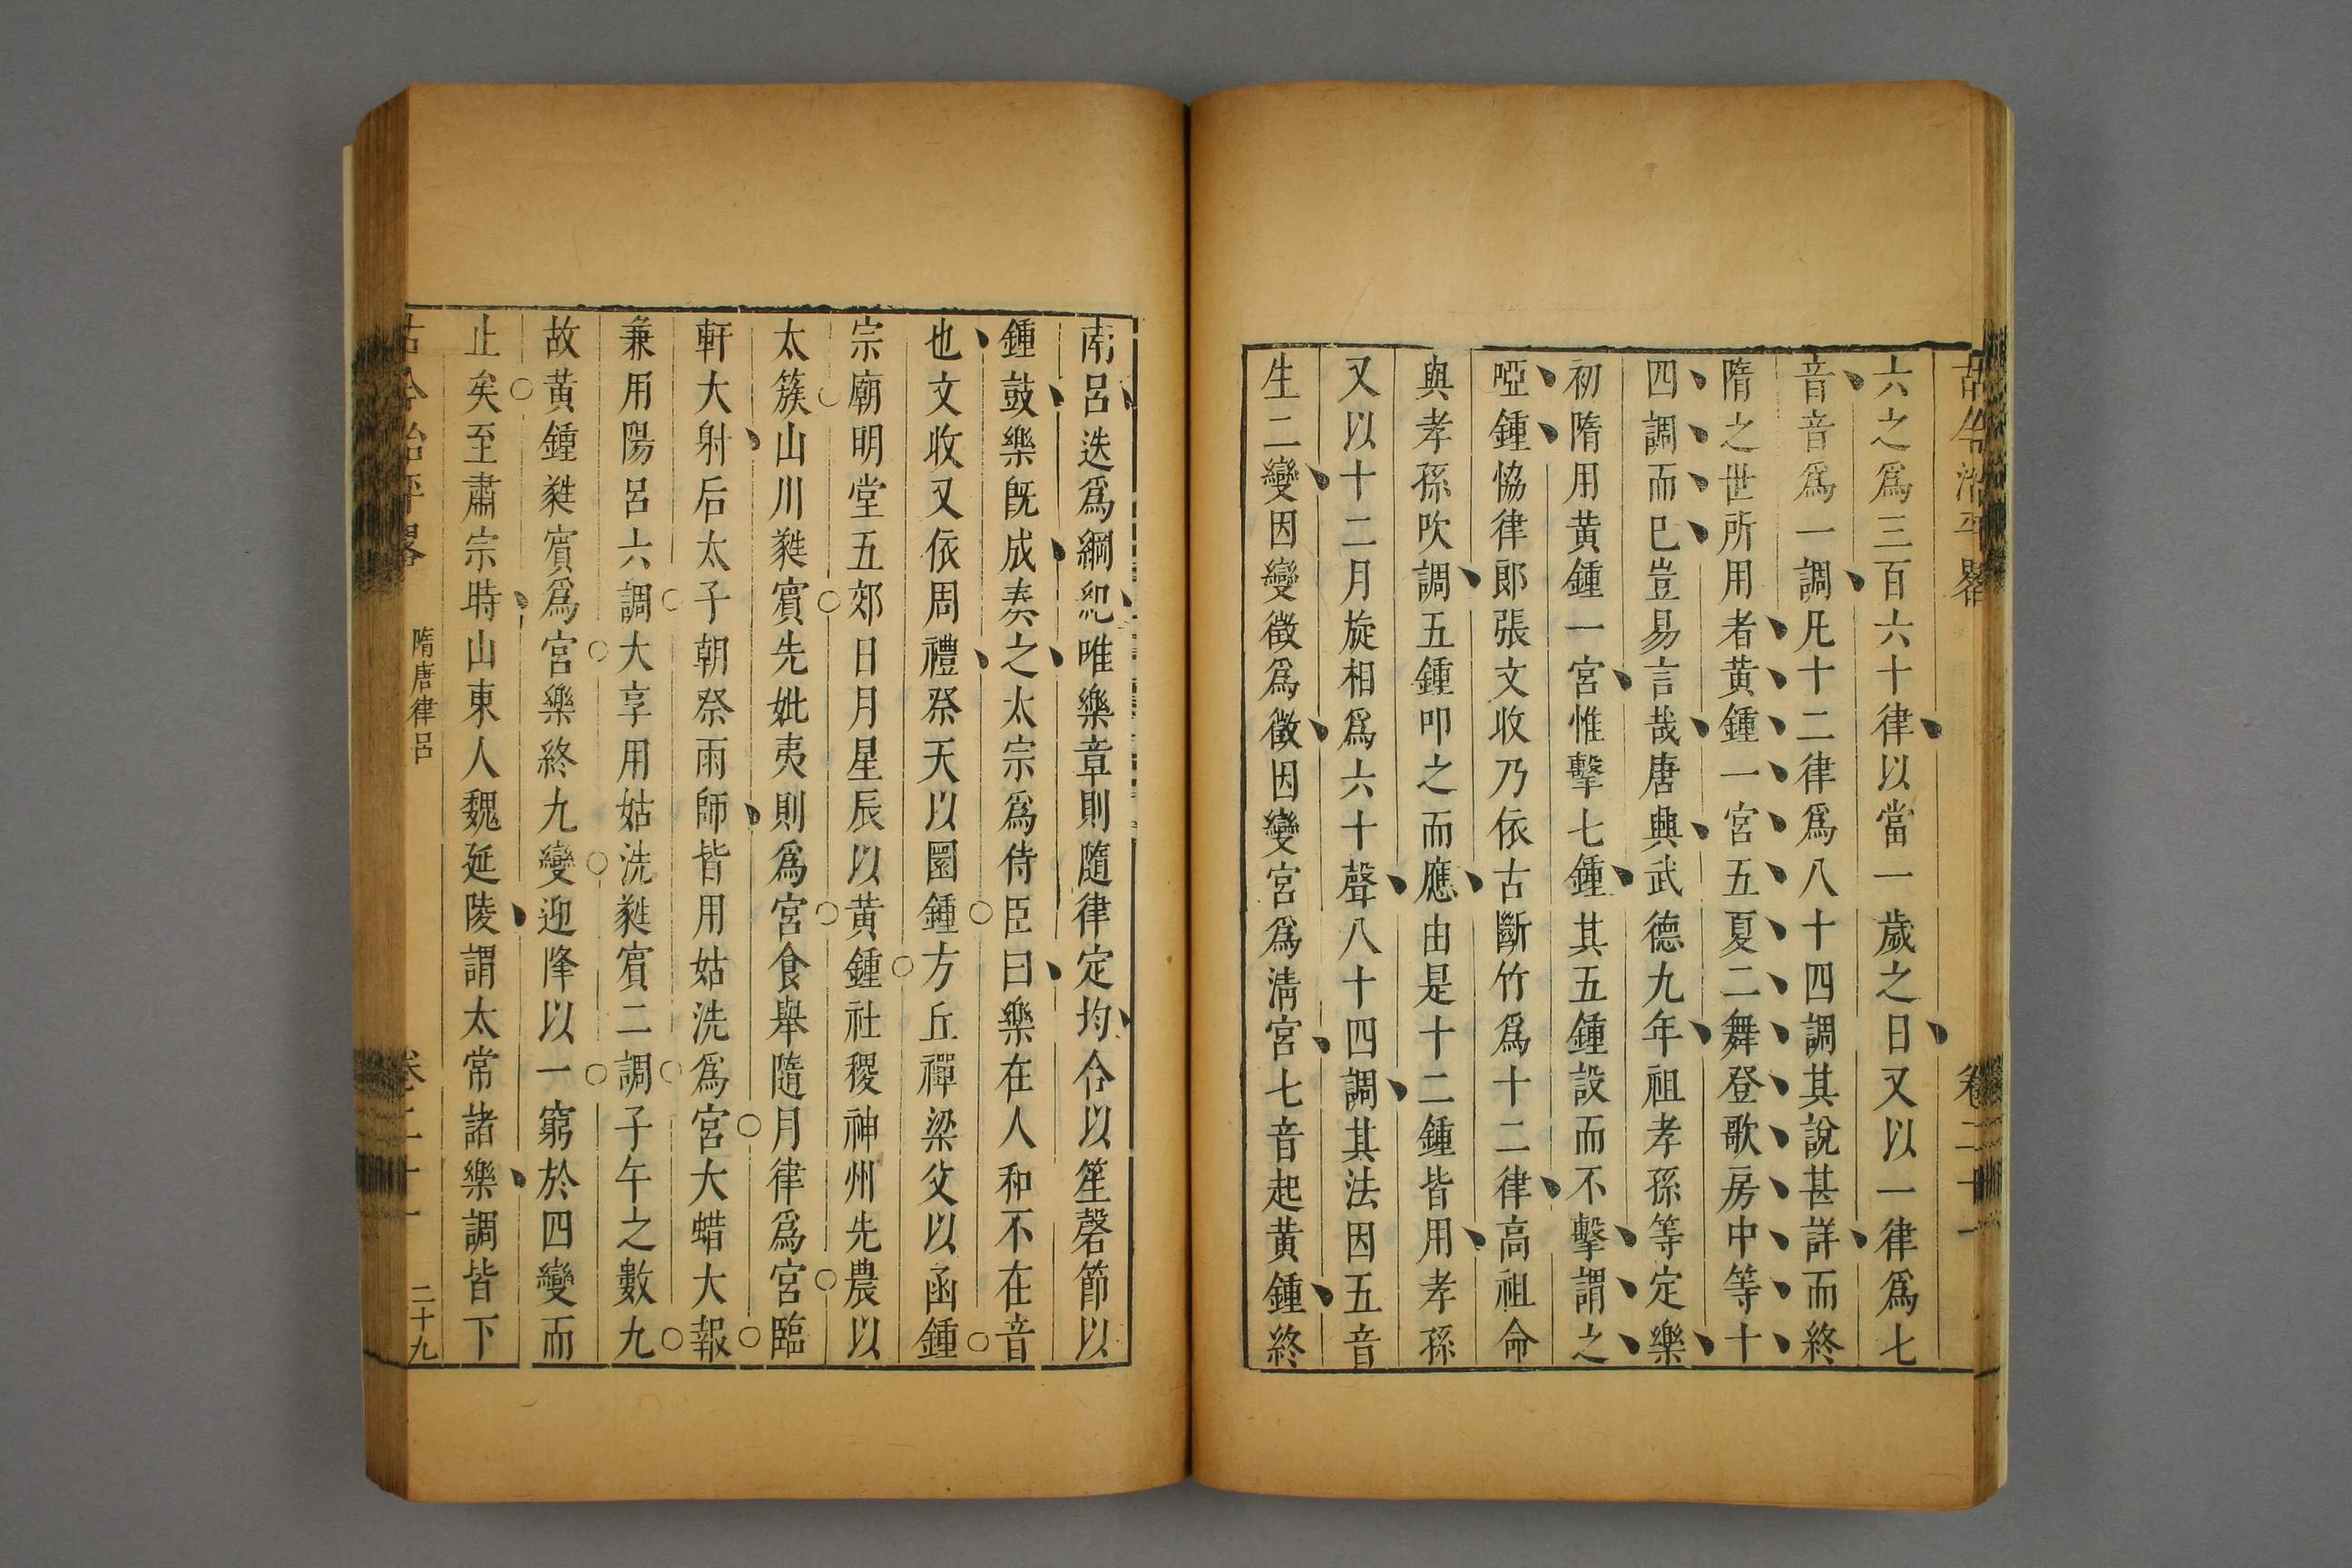 古今治平畧　卷二十一
六之爲三百六十律以當一歲之日又以一律爲七
音音爲一調凡十二律爲八十四調其說甚詳而終
隋之世所用者黄鍾一宮五夏二舞登歌房中等十
四調而已豈易言哉唐興武德九年祖孝孫等定樂
初隋用黄鍾一宮惟擊七鍾其五鍾設而不擊謂之
啞鍾協律郎張文收乃依古斷竹爲十二律高祖命
與孝孫吹調五鍾叩之而應由是十二鍾皆用孝孫
又以十二月旋相爲六十聲八十四調其法因五音
生二變因變徵爲徵因變宮爲清宮七音起黄鍾終
南呂迭爲綱紀唯樂章則隨律定均合以笙磬節以
鍾鼓樂旣成奏之太宗爲侍臣曰樂在人和不在音
也文收又依周禮祭天以圜鍾方丘禪梁父以函鍾
宗廟明堂五郊日月星辰以黄鍾社稷神州先農以
太簇山川蕤賓先妣夷則爲宮食舉隨月律爲宮臨
軒大射后太子朝祭雨師皆用姑洗爲宮大蜡大報
兼用陽呂六調大享用姑洗蕤賓二調子午之數九
故黃鍾蕤賓爲宮樂終九變迎降以一窮於四變而
止矣至肅宗時山東人魏延陵謂太常諸樂調皆下
古今治平畧　隋唐律呂　卷二十一　二十九